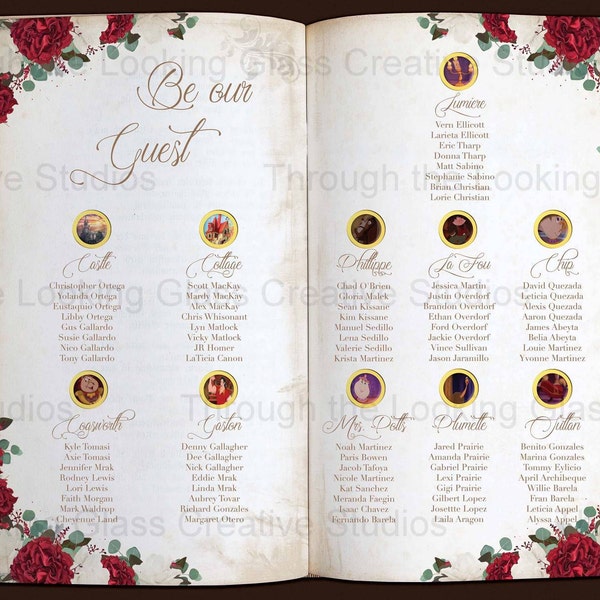 Be our
Guest
Castle
Christopher Ortega
Yolanda Ortega
Eustaquio Ortega
Libby Ortega
Gus Gallardo
Susie Gallardo
Nico Gallardo
Tony Gallardo
Cottage
Scott MacKay
Mardy MacKay
Alex MacKay
Chris Whisonant
Lyn Matlock
Vicky Matlock
JR Homer
LaTicia Canon
Cogsworth
Kyle Tomasi
Axie Tomasi
Jennifer Mrak
Rodney Lewis
Lori Lewis
Faith Morgan
Mark Waldrop
Cheyenne Land
Gaston
Denny Gallagher
Dee Gallagher
Nick Gallagher
Eddie Mrak
Linda Mrak
Aubrey Tovar
Richard Gonzales
Margaret Otero
Lumiere
Vern Ellicott
Larieta Ellicott
Eric Tharp
Donna Tharp
Matt Sabino
Stephanie Sabino
Brian Christian
Lorie Christian
Phillippe
Chad O'Brien
Gloria Malek
Sean Kissane
Kim Kissane
Manuel Sedillo
Lena Sedillo
Valerie Sedillo
Krista Martinez
La Fou
Jessica Martin
Justin Overdorf
Brandon Overdorf
Ethan Overdorf
Ford Overdorf
Jackie Overdorf
Vince Sullivan
Jason Jaramillo
Chip
David Quezada
Leticia Quezada
Alexis Quezada
Aaron Quezada
James Abeyta
Belia Abeyta
Louie Martinez
Yvonne Martinez
Mrs. Potts
Noah Martinez
Paris Bowen
Jacob Tafoya
Nicole Martinez
Kat Sanchez
Meranda Faegin
Isaac Chavez
Fernando Barela
Plumette
Jared Prairie
Amanda Prairie
Gabriel Prairie
Lexi Prairie
Gigi Prairie
Gilbert Lopez
Josettte Lopez
Laila Aragon
Sultan
Benito Gonzales
Marina Gonzales
Tommy Elyicio
April Archibeque
Willie Barela
Fran Barela
Leticia Appel
Alyssa Appel
Through the Looking Glass Creative Studios
Through the Looking Glass Creative Studios
Through the Looking Glass Creative Studios
Through the Looking
Glass Creative Studios